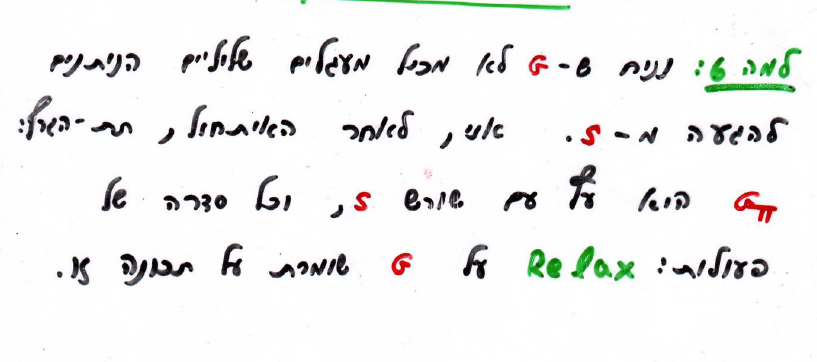 למה 6: נניח ש-G לא מכיל מעגלים שליליים הניתנים
להגעה מ-S. אזי, לאחר האיתחול, תת-הגרף:
Gπ הוא עץ עם שורש S, וכל סדרה של
פעולות: Relax על G שומרת על תכונה זו.